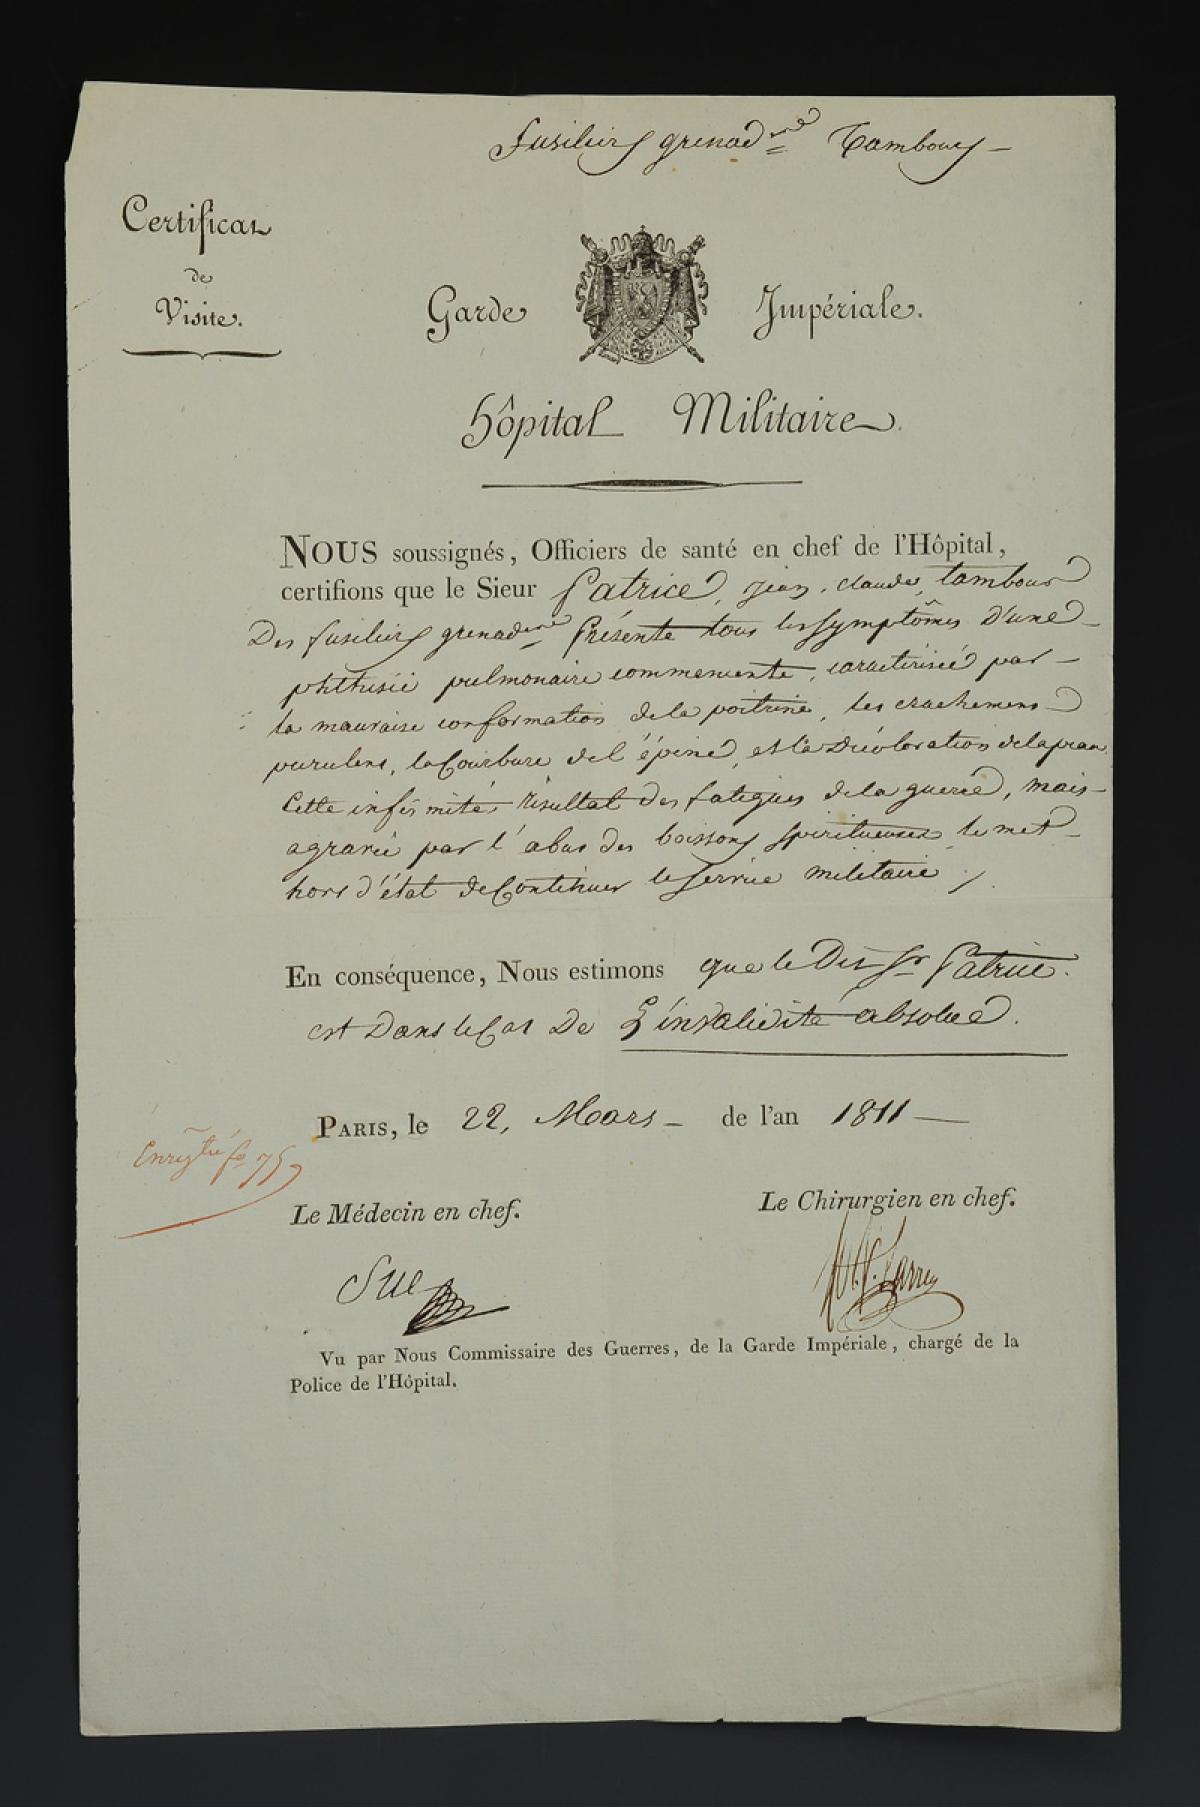 Fusiliers grenadiers Tambours
Certificat
de
Visite.
Garde Impériale.
Hôpital Militaire.
NOUS soussignés, Officiers de santé en chef de l'Hôpital,
certifions que le Sieur Patrice, jean, claude, tambour
Des fusiliers grenadiers Présente tous les symptômes D'une
phthisie pulmonaire commencente, caracterisée par
la mauvaise conformation de la poitrine, les crachemens
purulens, la Courbure de l'épine, et la Décoloration de la peau
Cette infirmité résultat des fatigues de la guerre, mais
agravée par l'abus des boissons spiritueuses, le met
hors d'état de Continuer le service militaire
En conséquence, Nous estimons que le Dit Sr Patrice.
est Dans le Cas De L'invalidité absolue.
PARIS, le 22, Mars de l'an 1811
Enregtré fo 75
Le Médecin en chef. Le Chirurgien en chef.
Sue Larrey
Vu par Nous Commissaire des Guerres, de la Garde Impériale, chargé de la
Police de l'Hôpital.